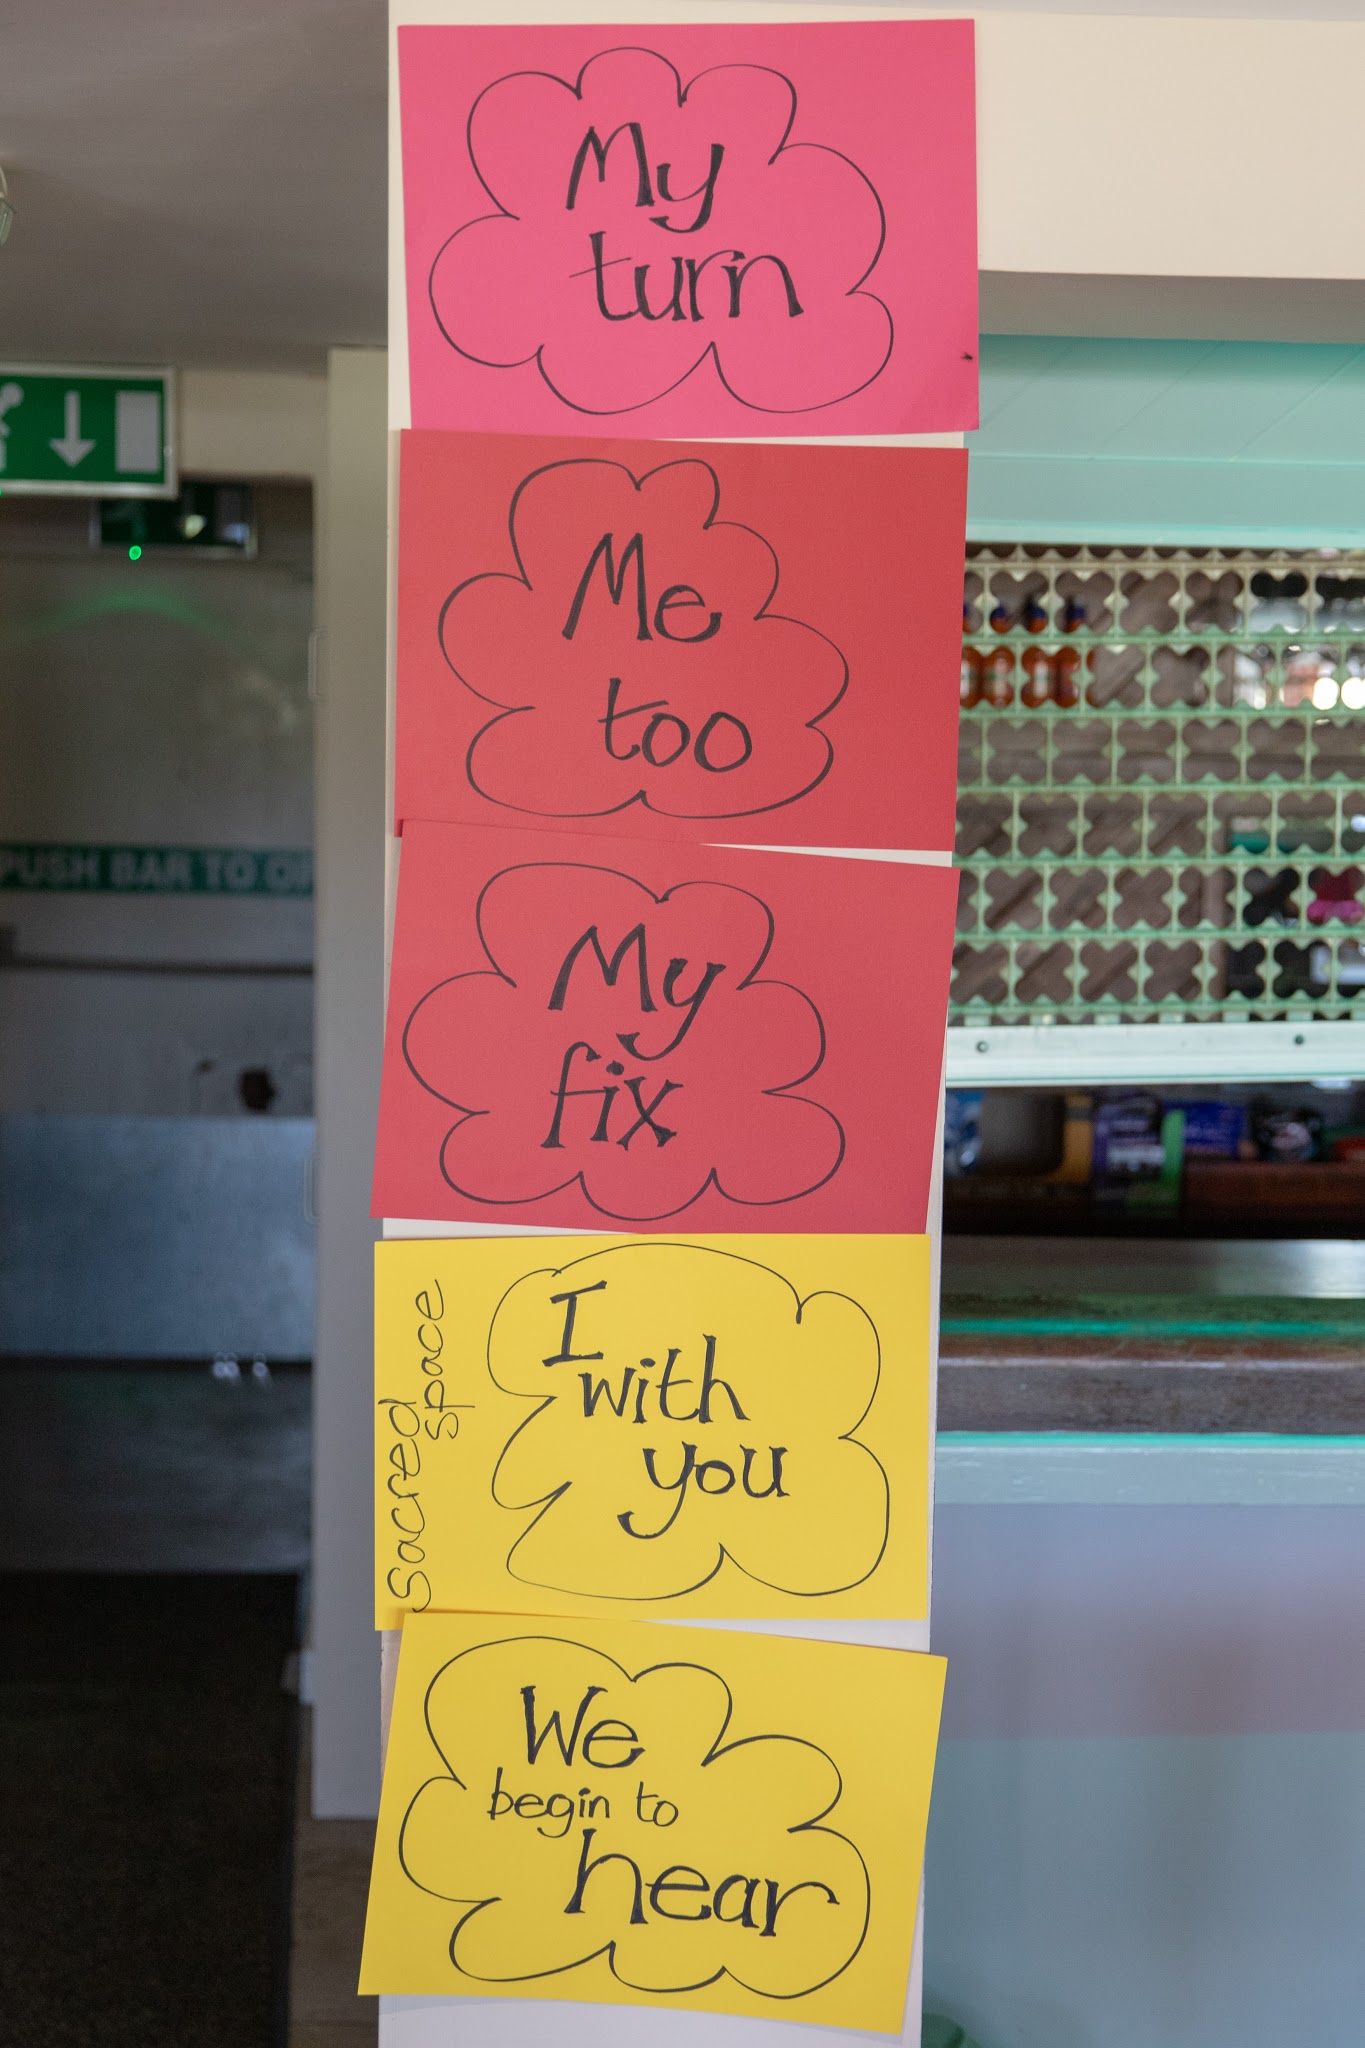 My
turn
Me
too
My
fix
Sacred
space
I
with
you
We
begin to
hear
PUSH BAR TO OP